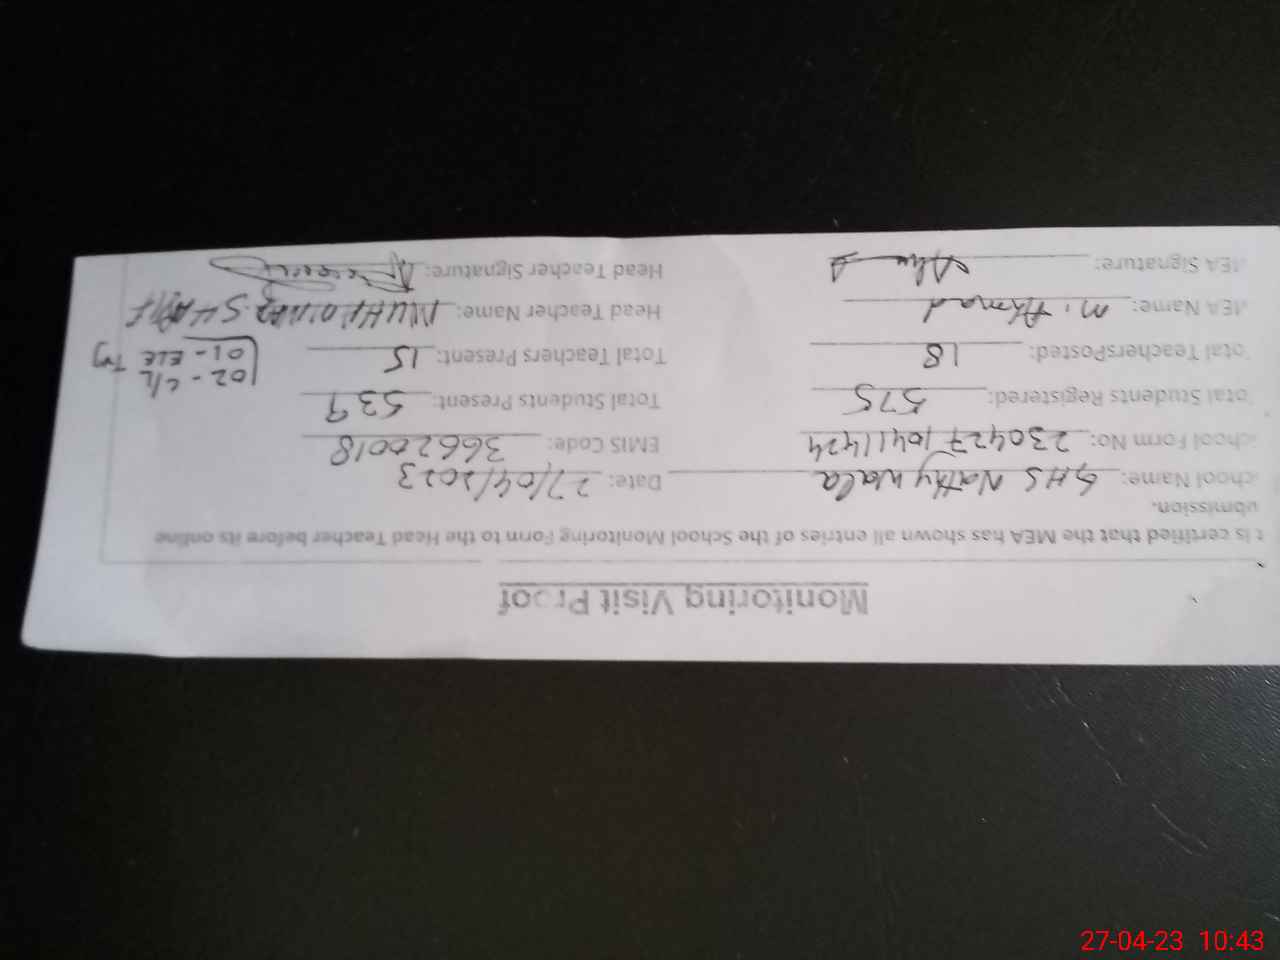 Monitoring Visit Proof
t is certified that the MEA has shown all entries of the School Monitoring Form to the Head Teacher before its online
ubmission.
chool Name: GHS Nathy Wala Date: 27/04/2023
chool Form No: 23042710411424 EMIS Code: 36620018
otal Students Registered: 575 Total Students Present: 539
otal TeachersPosted: 18 Total Teachers Present: 15
02 - C/L
01 - ELE Trg
MEA Name: M. Ahmad Head Teacher Name: MUHAMMAD SHARIF
MEA Signature: Head Teacher Signature:
27-04-23 10:43